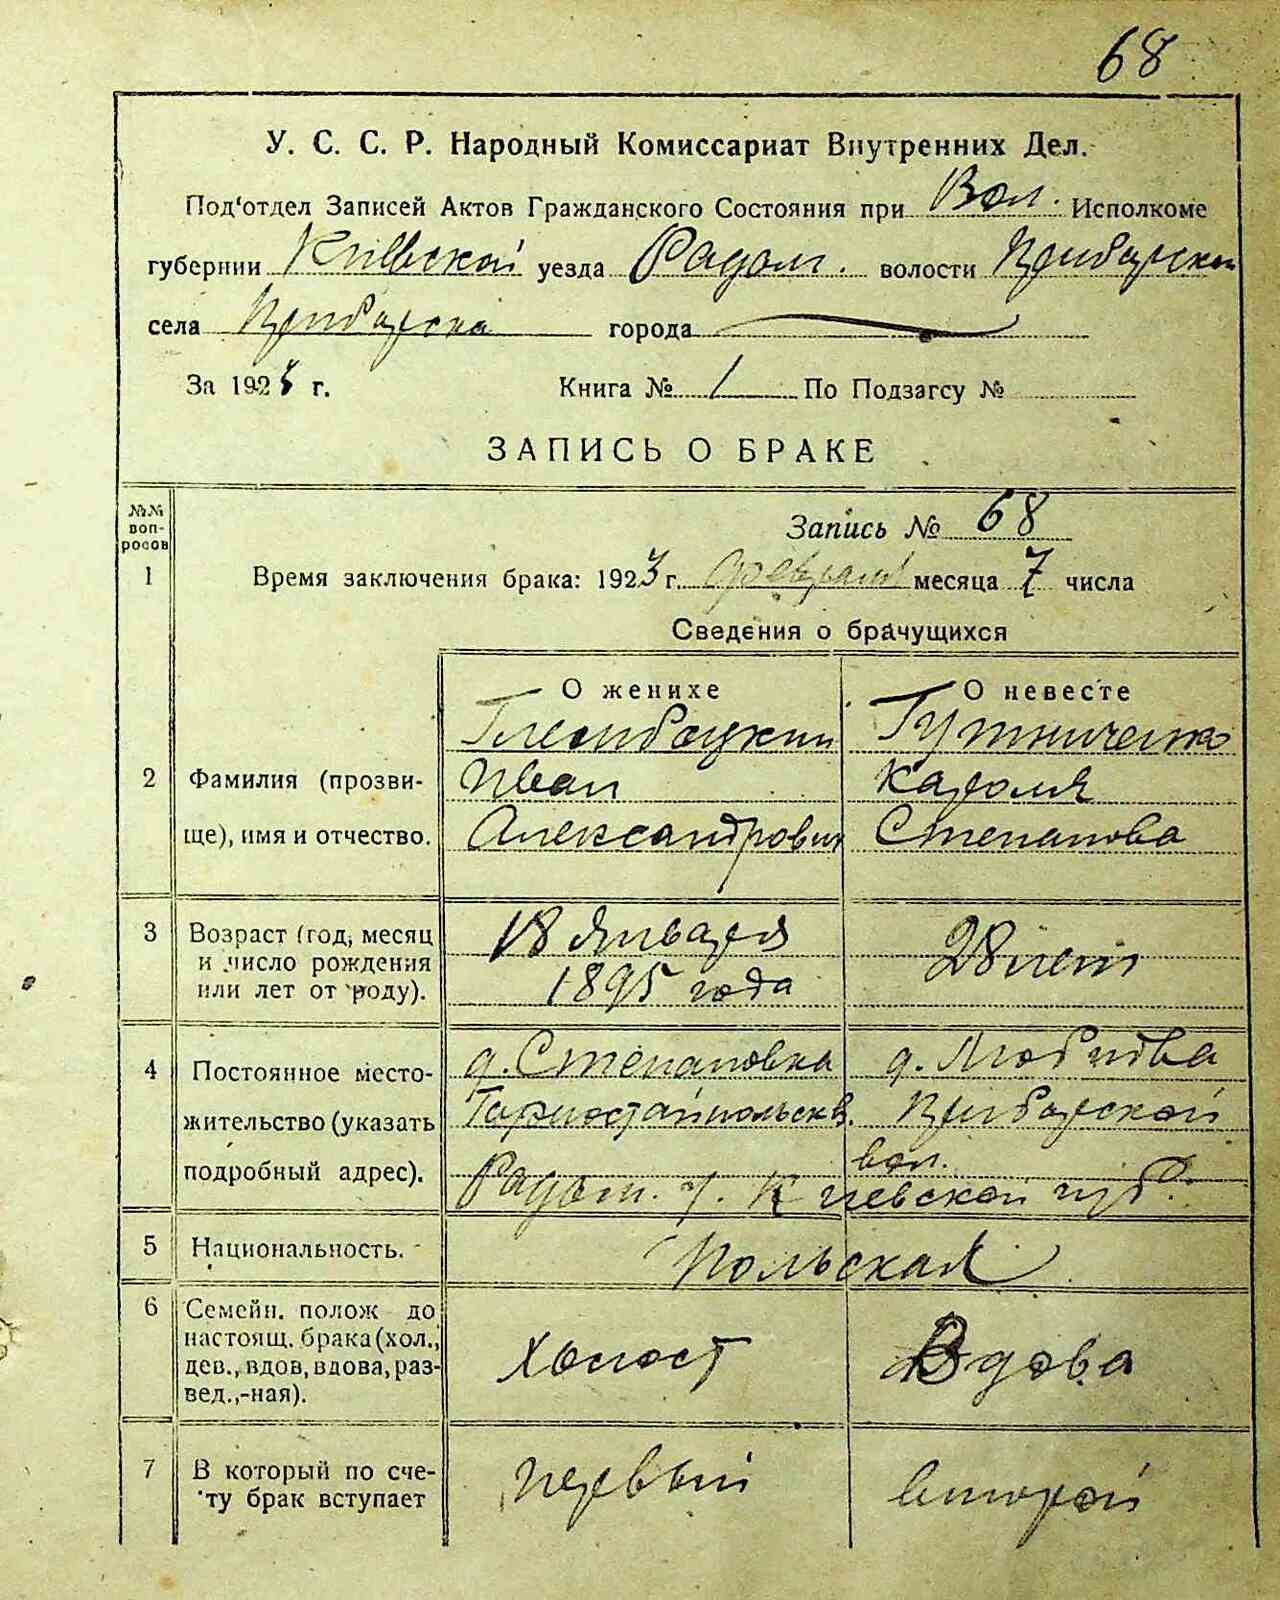 68
У. С. С. Р. Народный Комиссариат Внутренних Дел.
Под'отдел Записей Актов Гражданского Состояния при Вол. Исполкоме
губернии Киевской уезда Радом. волости Прибарской
села Прибарска города
За 1923 г. Книга № 1 По Подзагсу №
ЗАПИСЬ О БРАКЕ
№№ вопросов
Запись № 68
1 Время заключения брака: 1923 г. февраля месяца 7 числа
Сведения о брачущихся
О женихе О невесте
Глембоцкий Гутниченко
2 Фамилия (прозви- Иван Кароля
ще), имя и отчество. Александрович Степанова
3 Возраст (год, месяц 18 Января 28 лет
и число рождения
или лет от роду). 1895 года
4 Постоянное место- д. Степановка д. Любидва
жительство (указать Горностайпольск в. Прибарской
подробный адрес). вол.
Радом. у. Киевской губ.
5 Национальность. Польская
6 Семейн. полож до
настоящ. брака (хол., холост Вдова
дев., вдов, вдова, раз-
вед.,-ная).
7 В который по сче- первый второй
ту брак вступает